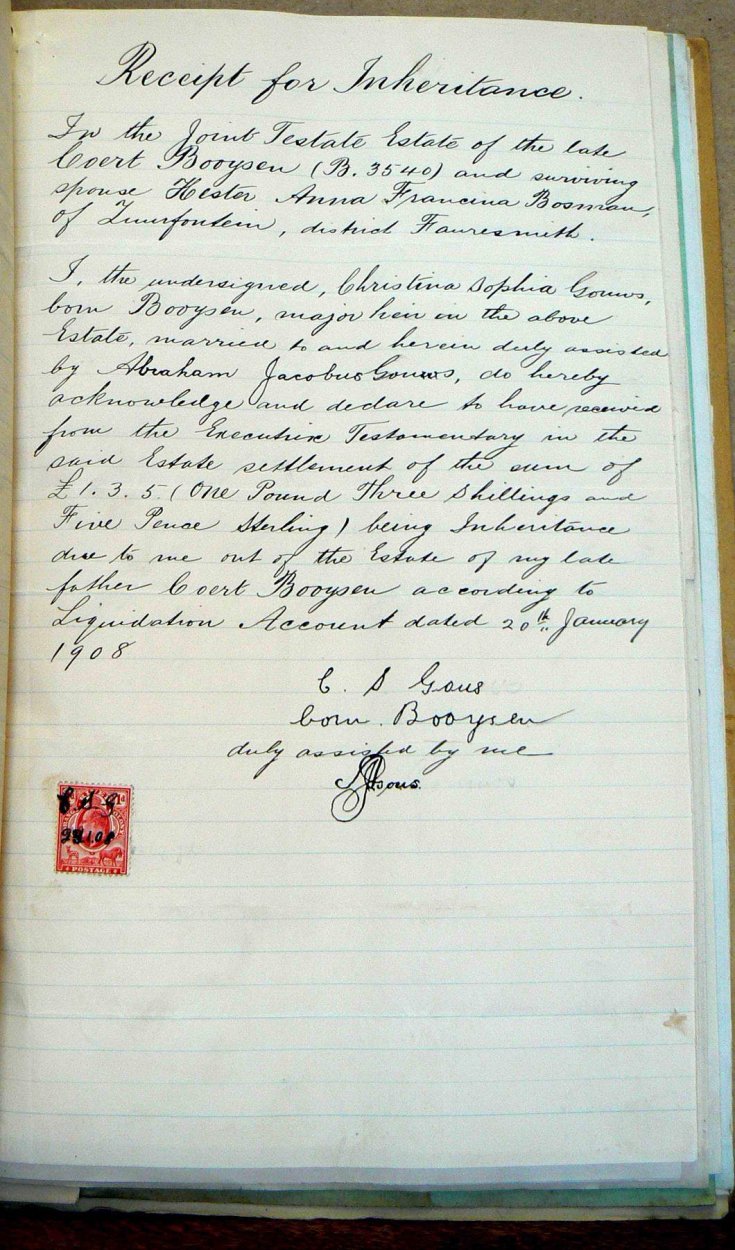 Receipt for Inheritance.
In the Joint Testate Estate of the late
Coert Booysen (B. 3540) and surviving
spouse Hester Anna Francina Bosman,
of Zuurfontein, district Fauresmith.
I, the undersigned, Christina Sophia Gouws,
born Booysen, major heir in the above
Estate, married to and herein duly assisted
by Abraham Jacobus Gouws, do hereby
acknowledge and declare to have received
from the Executrix Testamentary in the
said Estate settlement of the sum of
£1. 3. 5. (One Pound Three Shillings and
Five Pence Sterling) being Inheritance
due to me out of the Estate of my late
father Coert Booysen according to
Liquidation Account dated 20th January
1908
C. S Gous
born. Booysen
duly assisted by me
C. S. G
POSTAGE